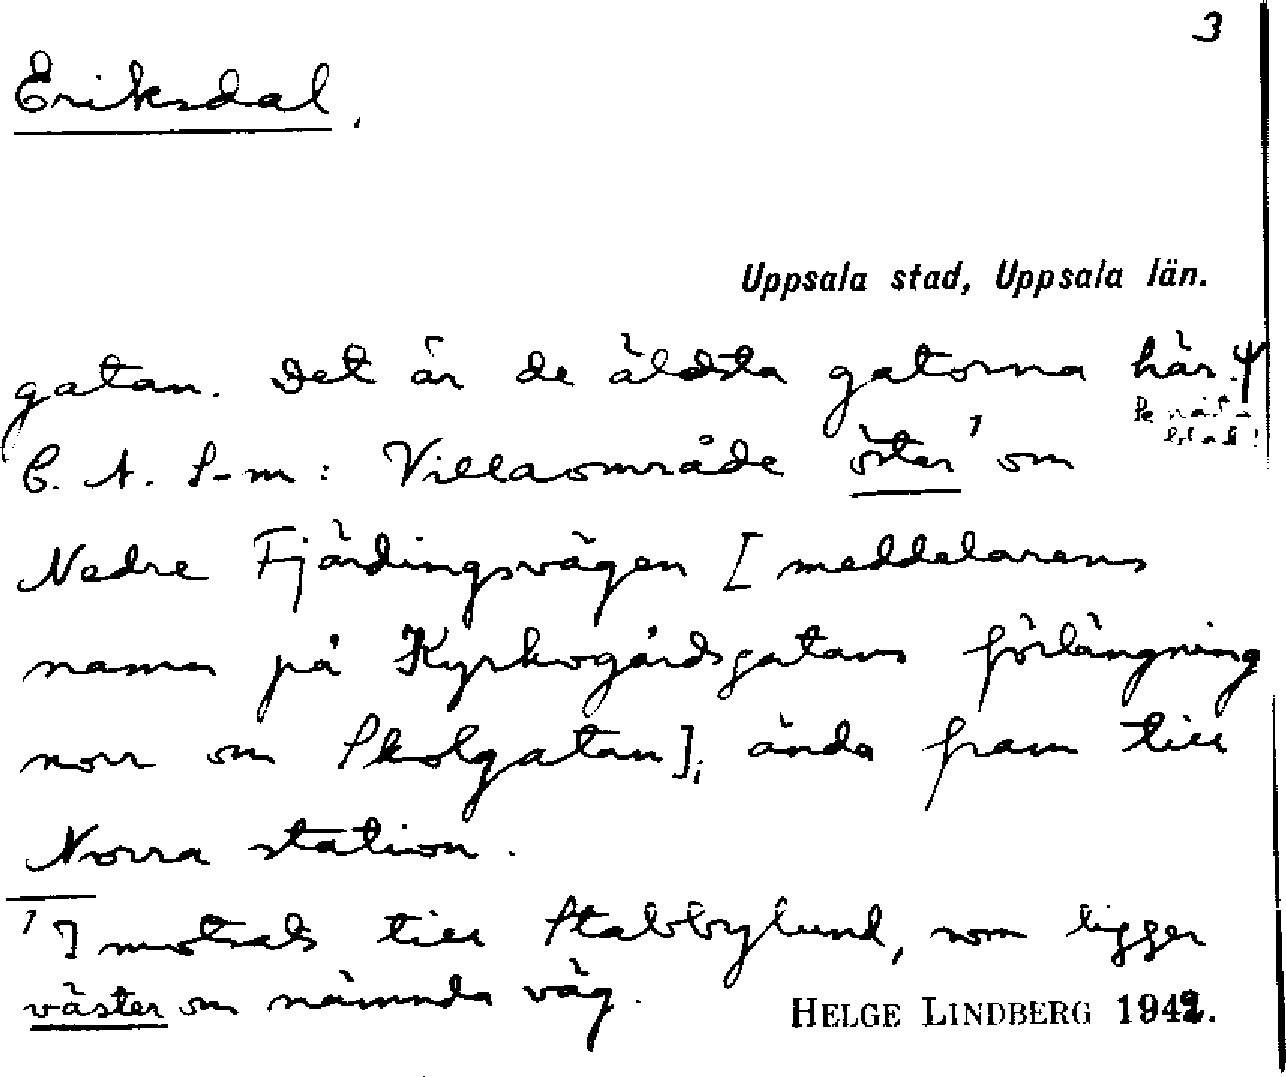 3
Eriksdal.
Uppsala stad, Uppsala län.
gatan. Det är de äldsta gatorna här.
C. A. S-m: Villaområde öster¹ om
Nedre Fjärdingsvägen [meddelarens
namn på Kyrkogårdsgatans förlängning
norr om Skolgatan], ända fram till
Norra station.
¹ I motsats till Stabbylund, som ligger
väster om nämnda väg.
HELGE LINDBERG 1942.